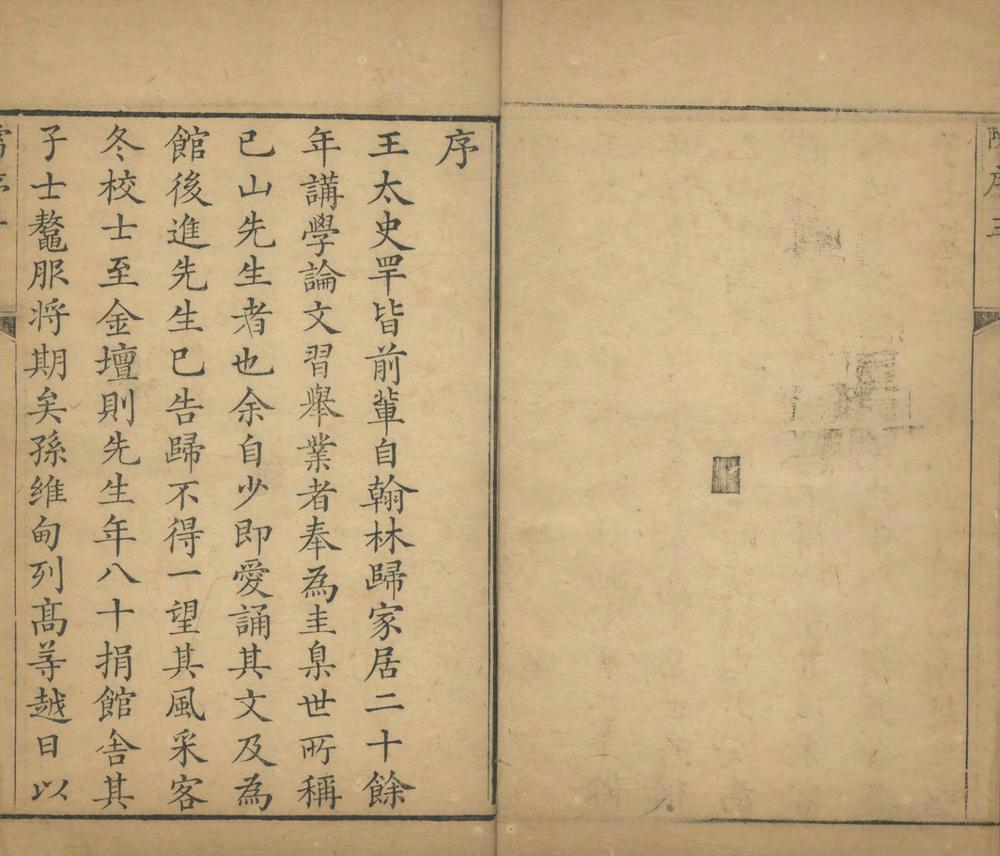 序
王太史罕皆前輩自翰林歸家居二十餘
年講學論文習舉業者奉為圭臬世所稱
已山先生者也余自少即愛誦其文及為
館後進先生已告歸不得一望其風采客
冬校士至金壇則先生年八十捐館舍其
子士鼇服將期矣孫維甸列髙等越日以